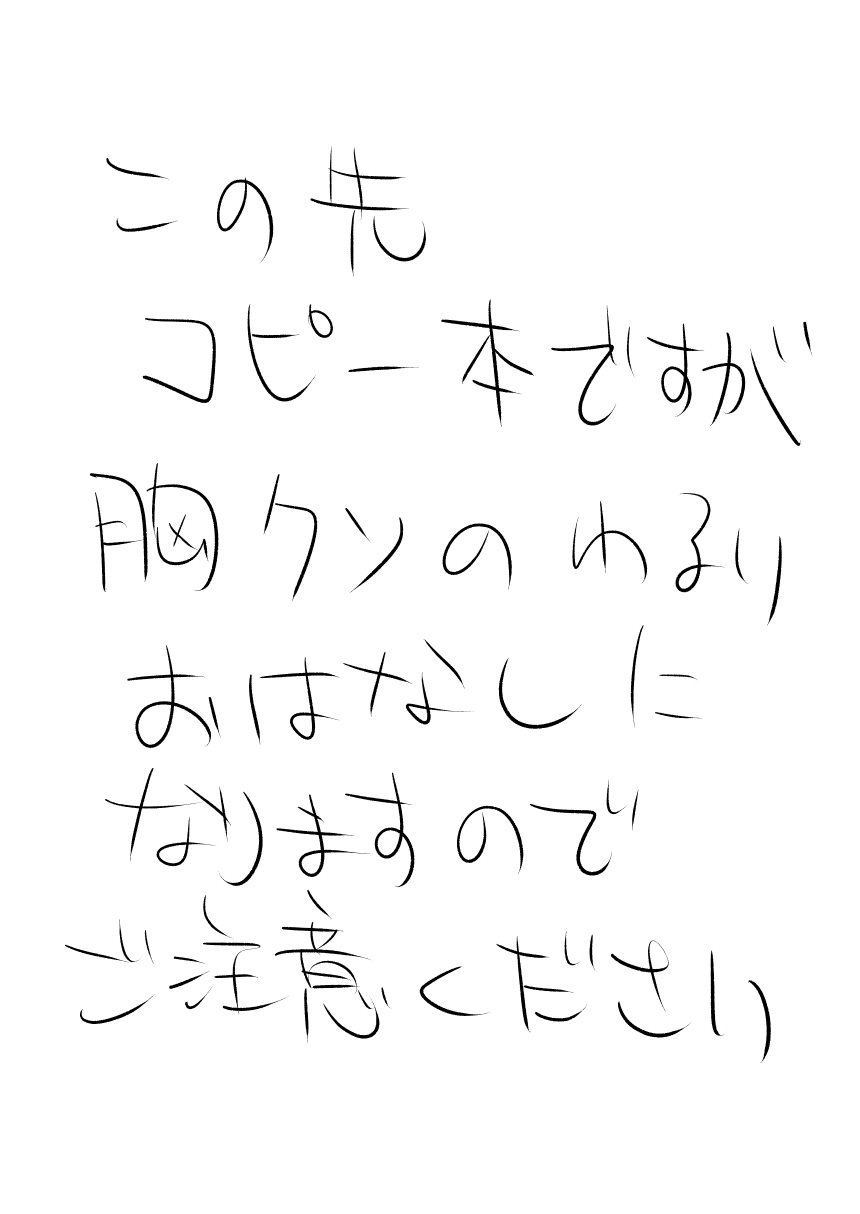 この先
コピー本ですが
胸クソのわるい
おはなしに
なりますので
ご注意ください